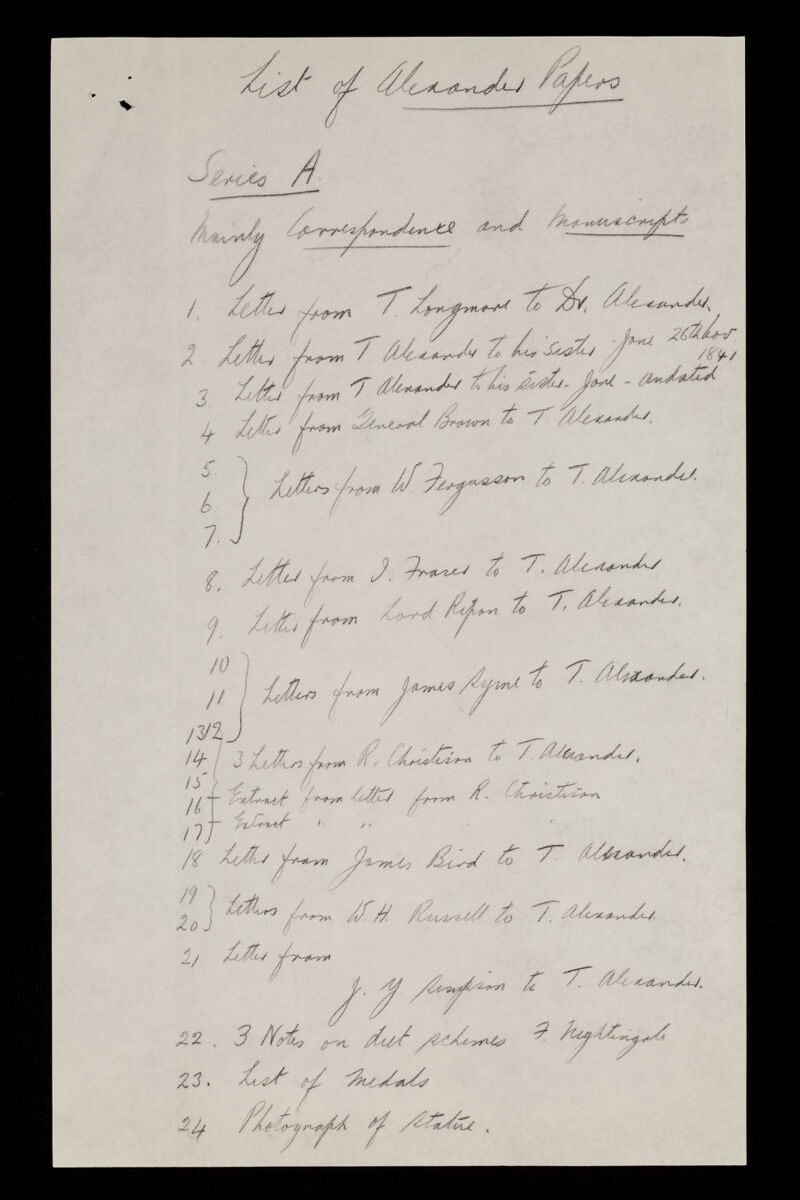 List of Alexander Papers
Series A
Mainly Correspondence and Manuscripts
1. Letter from T. Longmore to Dr. Alexander.
2. Letter from T. Alexander to his Sister Jane 26th Nov
1841
3. Letter from T. Alexander to his sister - Jane - undated
4. Letter from General Brown to T. Alexander.
5.
6 Letters from W. Fergusson to T. Alexander.
7.
8. Letter from I. Fraser to T. Alexander
9. Letter from Lord Ripon to T. Alexander.
10
11 Letters from James Syme to T. Alexander.
13 12
14 3 Letters from R. Christison to T. Alexander.
15
16 Extract from letter from R. Christison
17 Extract " "
18 Letter from James Bird to T. Alexander.
19
20 Letters from W. H. Russell to T. Alexander
21 Letter from
J. Y. Simpson to T. Alexander.
22. 3 Notes on diet schemes F. Nightingale
23. List of Medals
24 Photograph of Statue.